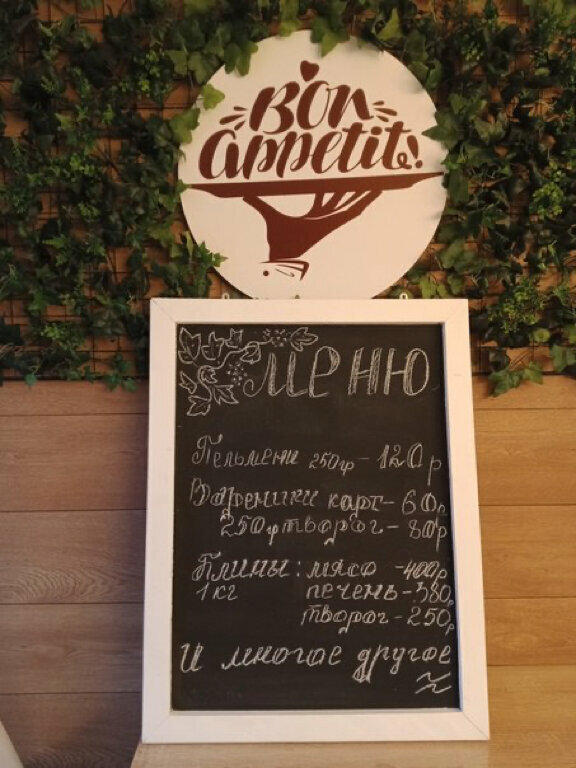 Bon
appetit!
Меню
Пельмени 250гр - 120р
Вареники карт - 60р
250гр творог - 80р
Блины: мясо - 400р
1кг печень - 380р
творог - 250р
И многое другое